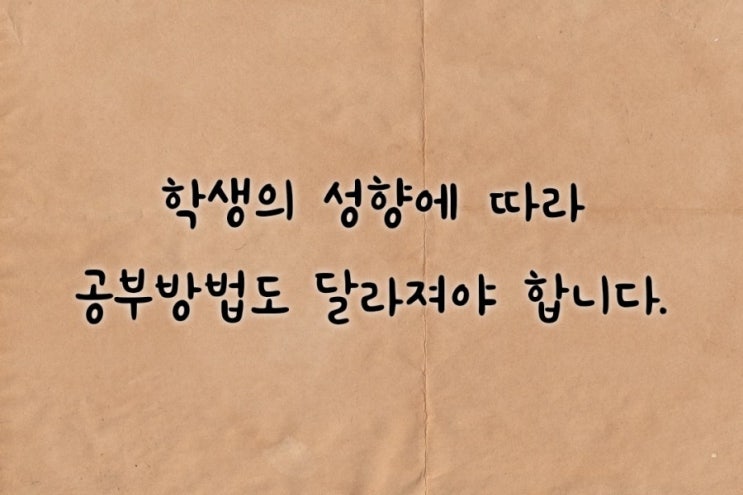 학생의 성향에 따라
공부방법도 달라져야 합니다.